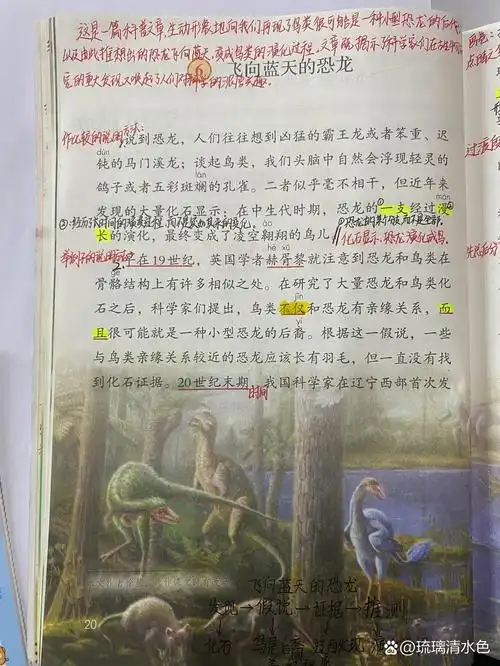 这是一篇科普文章,生动形象地向我们再现了鸟类很可能是一种小型恐龙的后代
以及由此推想出的恐龙飞向蓝天,变成鸟类的演化过程。文章既揭示了科学家们在古生物
飞向蓝天的恐龙
作比较的说明方法:
说到恐龙,人们往往想到凶猛的霸王龙或者笨重、迟
dùn
钝的马门溪龙;谈起鸟类,我们头脑中自然会浮现轻灵的
lán
鸽子或者五彩斑斓的孔雀。二者似乎毫不相干,但近年来
màn
发现的大量化石显示:在中生代时期,恐龙的一支经过漫
áo
长的演化,最终变成了凌空翱翔的鸟儿。
化石显示,恐龙演化成鸟
hè xū
早在19世纪,英国学者赫胥黎就注意到恐龙和鸟类在
gé
骨骼结构上有许多相似之处。在研究了大量恐龙和鸟类化
jǐn
石之后,科学家们提出,鸟类不仅和恐龙有亲缘关系,而
yì
且很可能就是一种小型恐龙的后裔。根据这一假说,一些
与鸟类亲缘关系较近的恐龙应该长有羽毛,但一直没有找
到化石证据。20世纪末期,我国科学家在辽宁西部首次发
时间
飞向蓝天的恐龙
发现→假说→证据→推测
化石
20
@琉璃清水色